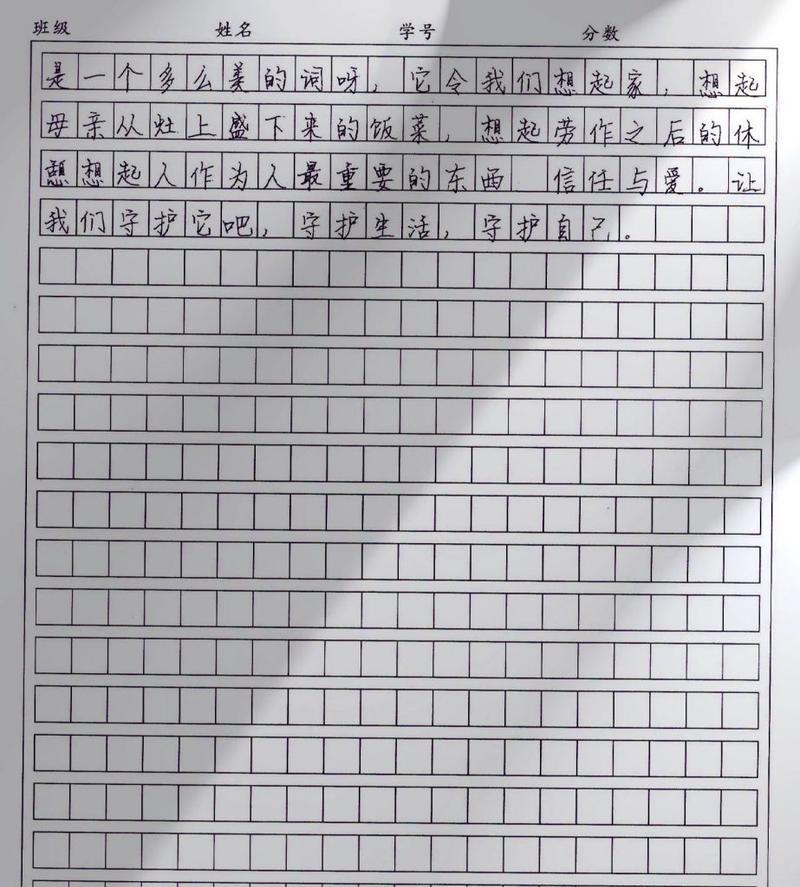 班级 姓名 学号 分数
是一个多么美的词呀，它令我们想起家，想起
母亲从灶上盛下来的饭菜，想起劳作之后的休
憩想起人作为人最重要的东西 信任与爱。让
我们守护它吧，守护生活，守护自己。